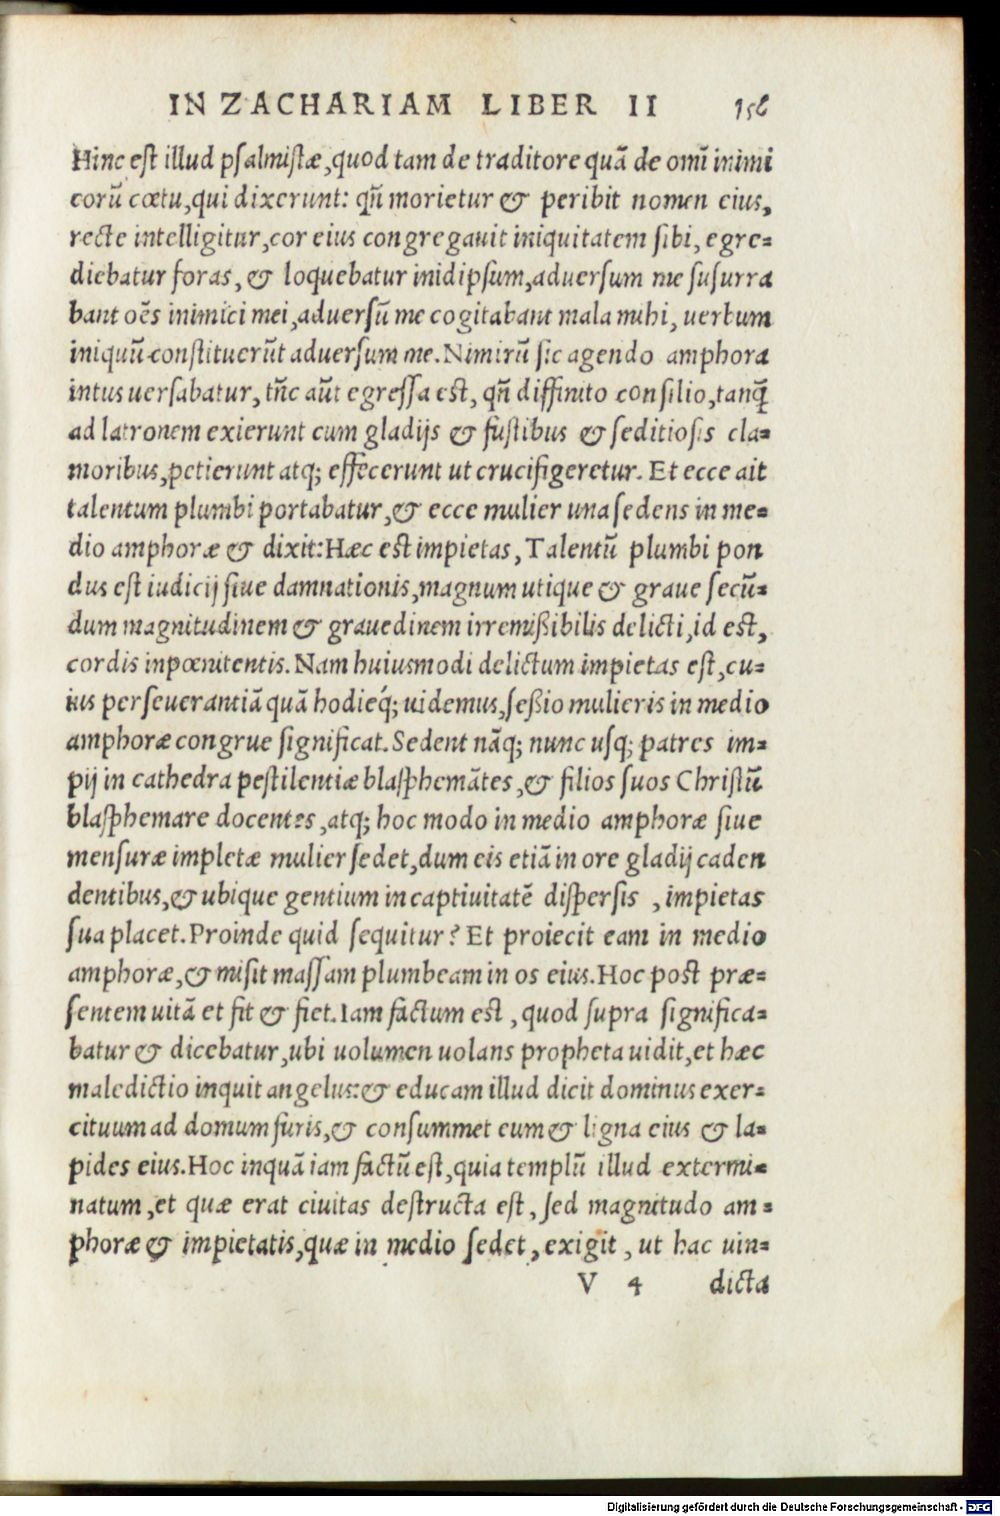 IN ZACHARIAM LIBER II 156
Hinc est illud psalmistæ,quod tam de traditore quã de omĩ inimi
corũ cœtu,qui dixerunt: qñ morietur & peribit nomen eius,
recte intelligitur,cor eius congregauit iniquitatem sibi, egre=
diebatur foras, & loquebatur inidipsum,aduersum me susurra
bant oẽs inimici mei,aduersũ me cogitabant mala mihi, uerbum
iniquũ constituerũt aduersum me. Nimirũ sic agendo amphora
intus uersabatur, tñc aũt egressa est, qñ diffinito consilio,tanq̃
ad latronem exierunt cum gladijs & fustibus & seditiosis cla=
moribus,petierunt atq; effecerunt ut crucifigeretur. Et ecce ait
talentum plumbi portabatur,& ecce mulier una sedens in me=
dio amphoræ & dixit:Hæc est impietas, Talentũ plumbi pon
dus est iudicij siue damnationis,magnum utique & graue secũ=
dum magnitudinem & grauedinem irremißibilis delicti,id est,
cordis inpœnitentis. Nam huiusmodi delictum impietas est,cu=
ius perseuerantiã quã hodieq́; uidemus,seßio mulieris in medio
amphoræ congrue significat. Sedent nãq; nunc usq; patres im=
pij in cathedra pestilentiæ blasphemãtes,& filios suos Christũ
blasphemare docentes,atq; hoc modo in medio amphoræ siue
mensuræ impletæ mulier sedet,dum eis etiã in ore gladij caden
dentibus,& ubique gentium in captiuitatẽ dispersis ,impietas
sua placet.Proinde quid sequitur? Et proiecit eam in medio
amphoræ,& misit massam plumbeam in os eius.Hoc post præ=
sentem uitã et fit & fiet.Iam factum est ,quod supra significa=
batur & dicebatur,ubi uolumen uolans propheta uidit,et hæc
maledictio inquit angelus:& educam illud dicit dominus exer=
cituum ad domum furis,& consummet eum & ligna eius & la=
pides eius.Hoc inquã iam factũ est,quia templũ illud extermi=
natum,et quæ erat ciuitas destructa est, sed magnitudo am=
phoræ & impietatis,quæ in medio sedet, exigit , ut hac uin=
V 4 dicta
Digitalisierung gefördert durch die Deutsche Forschungsgemeinschaft - DFG